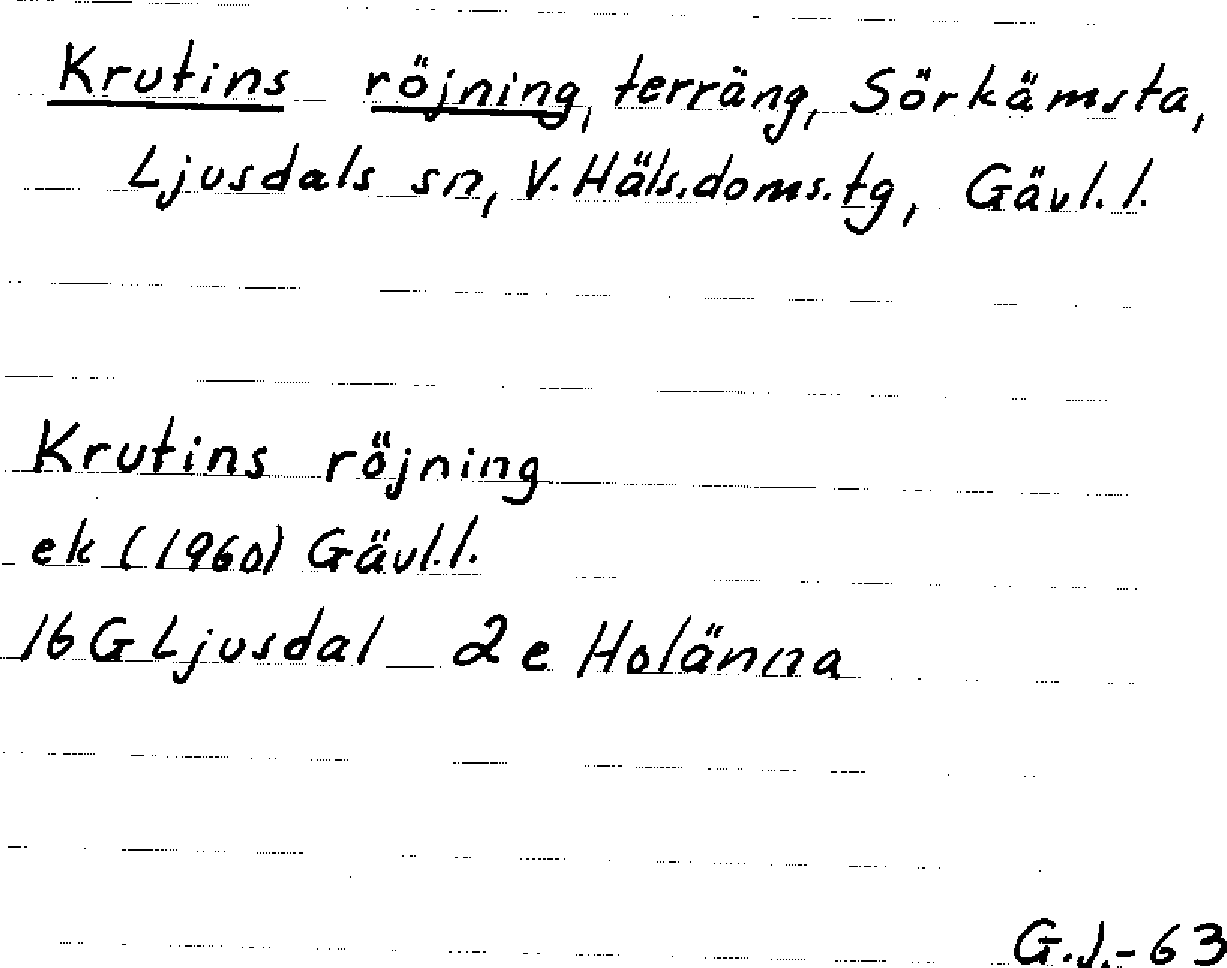 Krutins röjning, terräng, Sörkämsta,
Ljusdals sn, V. Häls. doms. tg, Gävl. l.
Krutins röjning
ek (1960) Gävl. l.
16 G Ljusdal 2 e Holänna
G.J.-63